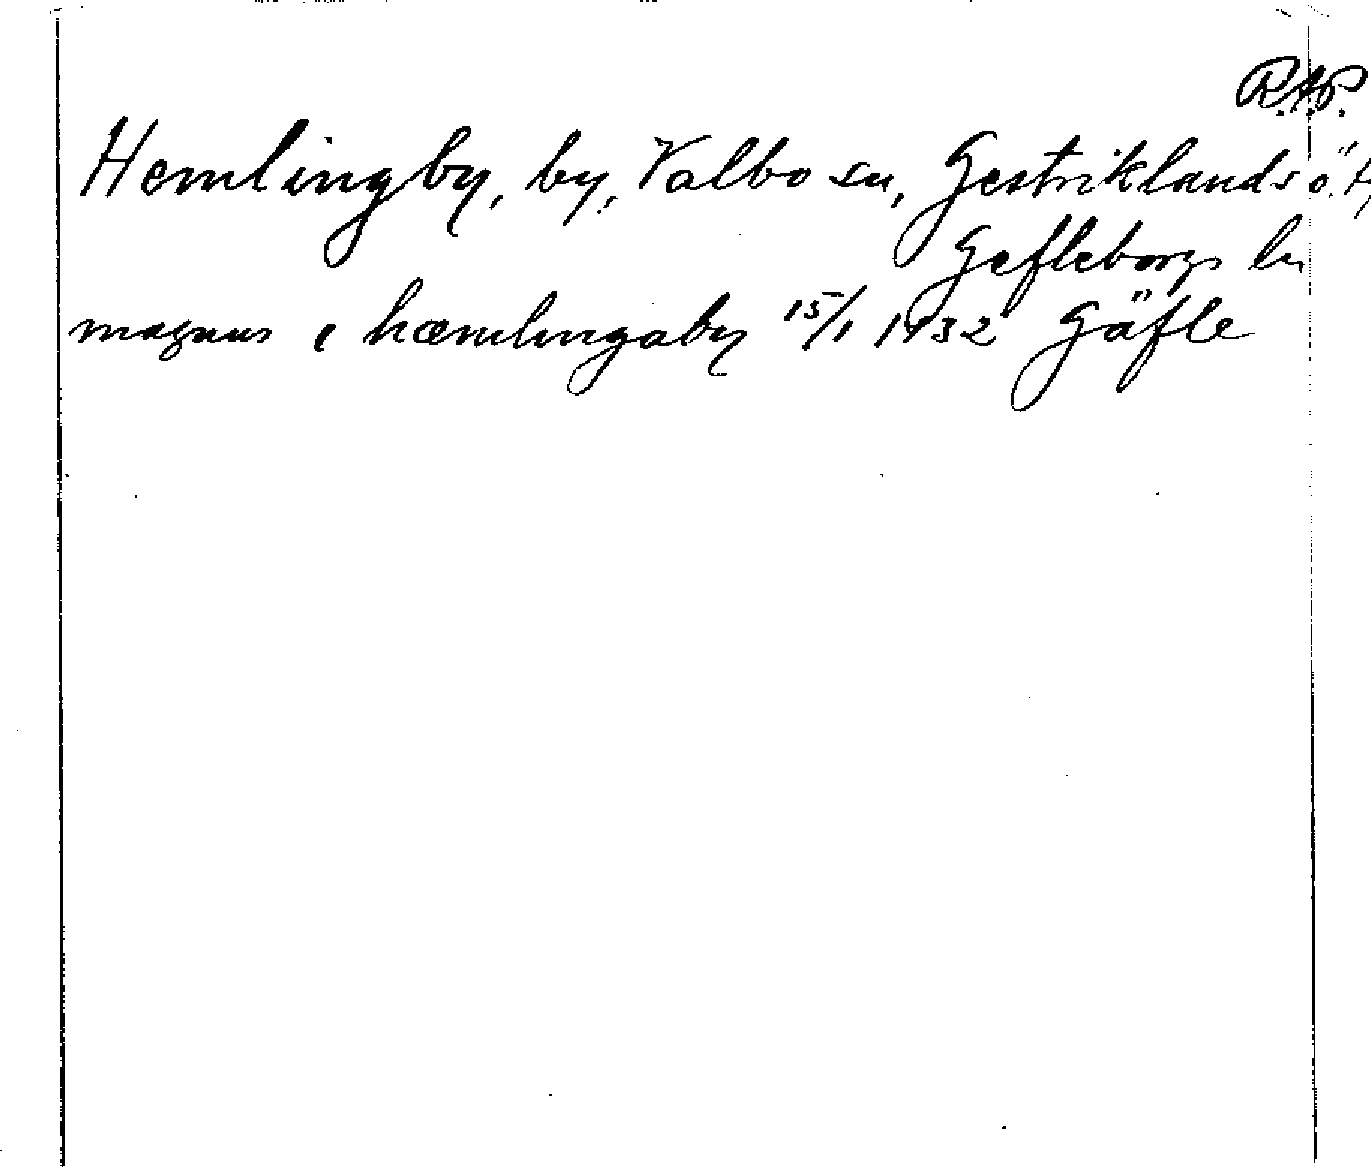 R.A.P.
Hemlingby, by, Valbo sn, Gestriklands ö. t,
Gefleborgs ln
magnus i hæmlingaby 15/1 1432 Gäfle